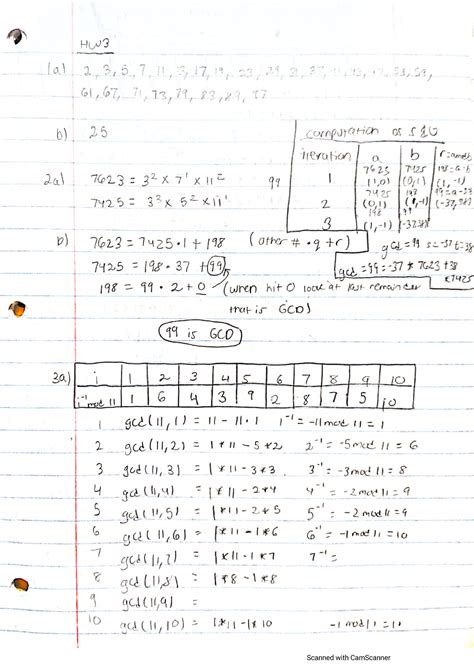 HW3
1a) 2, 3, 5, 7, 11, 13, 17, 19, 23, 29, 31, 37, 41, 43, 47, 53, 59,
61, 67, 71, 73, 79, 83, 89, 97
b) 25
computation of s & t
iteration a b
1 7623 (1,0) 7425 (0,1) 198 (1,-1)
2 7425 (0,1) 198 (1,-1) (-37,38)
3 198 (1,-1) 99 (-37,38)
2a) 7623 = 3² × 7¹ × 11² 99
7425 = 3³ × 5² × 11¹
b) 7623 = 7425 · 1 + 198 (other # · q + r)
gcd = 99 s = -37 t = 38
7425 = 198 · 37 + 99
gcd = 99 = -37 * 7623 + 38 * 7425
198 = 99 · 2 + 0 (when hit 0 look at last remainder
that is GCD)
99 is GCD
3a) i 1 2 3 4 5 6 7 8 9 10
i⁻¹ mod 11 1 6 4 3 9 2 8 7 5 10
1 gcd(11,1) = 11 - 11·1 1⁻¹ = -11 mod 11 = 1
2 gcd(11,2) = 1*11 - 5*2 2⁻¹ = -5 mod 11 = 6
3 gcd(11,3) = 1*11 - 3*3 3⁻¹ = -3 mod 11 = 8
4 gcd(11,4) = 1*11 - 2*4 4⁻¹ = -2 mod 11 = 9
5 gcd(11,5) = 1*11 - 2*5 5⁻¹ = -2 mod 11 = 9
6 gcd(11,6) = 1*11 - 1*6 6⁻¹ = -1 mod 11 = 10
7 gcd(11,7) = 1*11 - 1*7 7⁻¹ =
8 gcd(11,8) = 1*8 - 1*8
9 gcd(11,9) =
10 gcd(11,10) = 1*11 - 1*10 -1 mod 11 = 10
Scanned with CamScanner